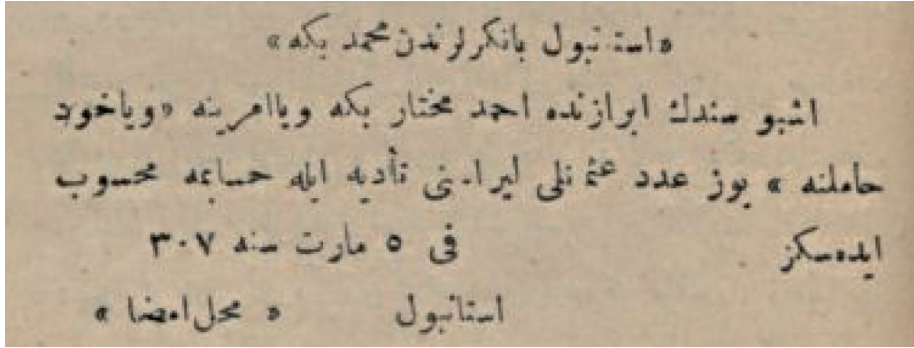 «استانبول بانكرلرندن محمد بكه»
اشبو سندك ابرازنده احمد مختار بكه وياامرينه «وياخود
حاملنه » يوز عدد عثمانلى ليراسنى تأديه ايله حسابمه محسوب
ايده‌سكز فى ٥ مارت سنه ٣٠٧
استانبول « محل امضا »